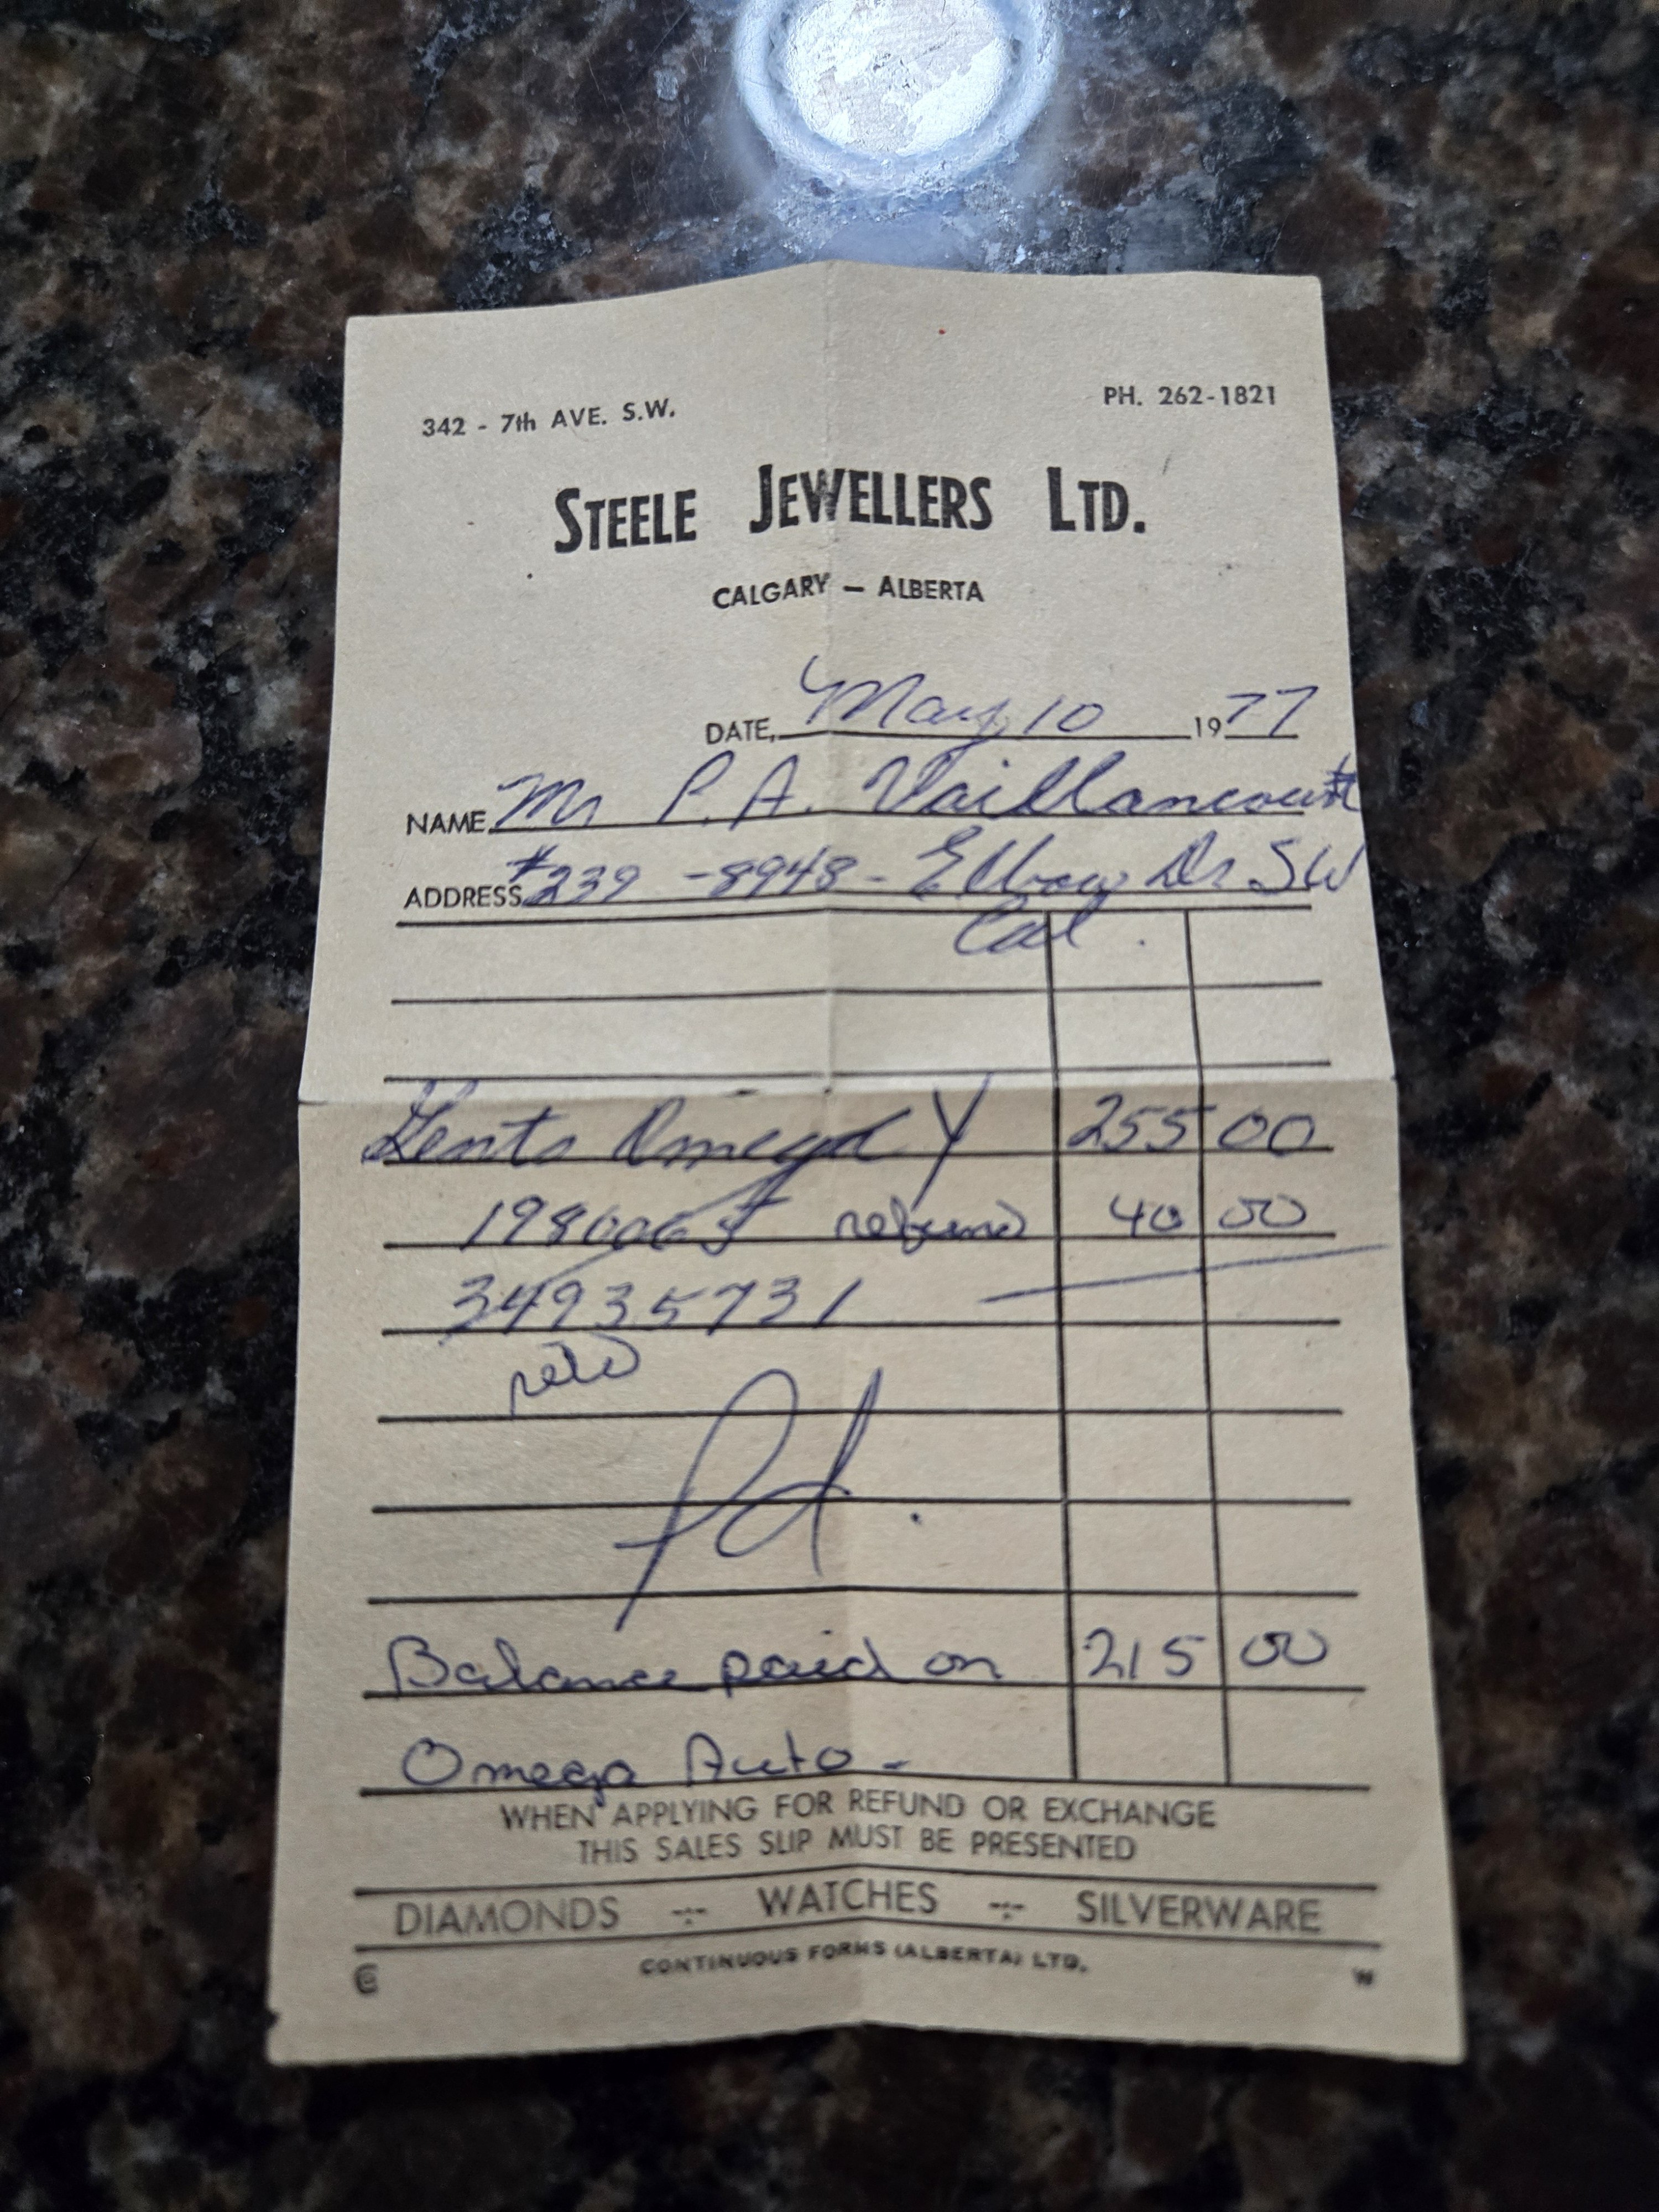 342 - 7th AVE. S.W. PH. 262-1821
STEELE JEWELLERS LTD.
CALGARY — ALBERTA
DATE, May 10 1977
NAME Mr P. A. Vaillancourt
ADDRESS #239 - 8948 - Elbow Dr SW
Cal.
Gents Omega Y 255 00
198006 refund 40 00
34935731
Pd.
Balance paid on 215 00
Omega Auto -
WHEN APPLYING FOR REFUND OR EXCHANGE
THIS SALES SLIP MUST BE PRESENTED
DIAMONDS ÷ WATCHES ÷ SILVERWARE
CONTINUOUS FORMS (ALBERTA) LTD.
W